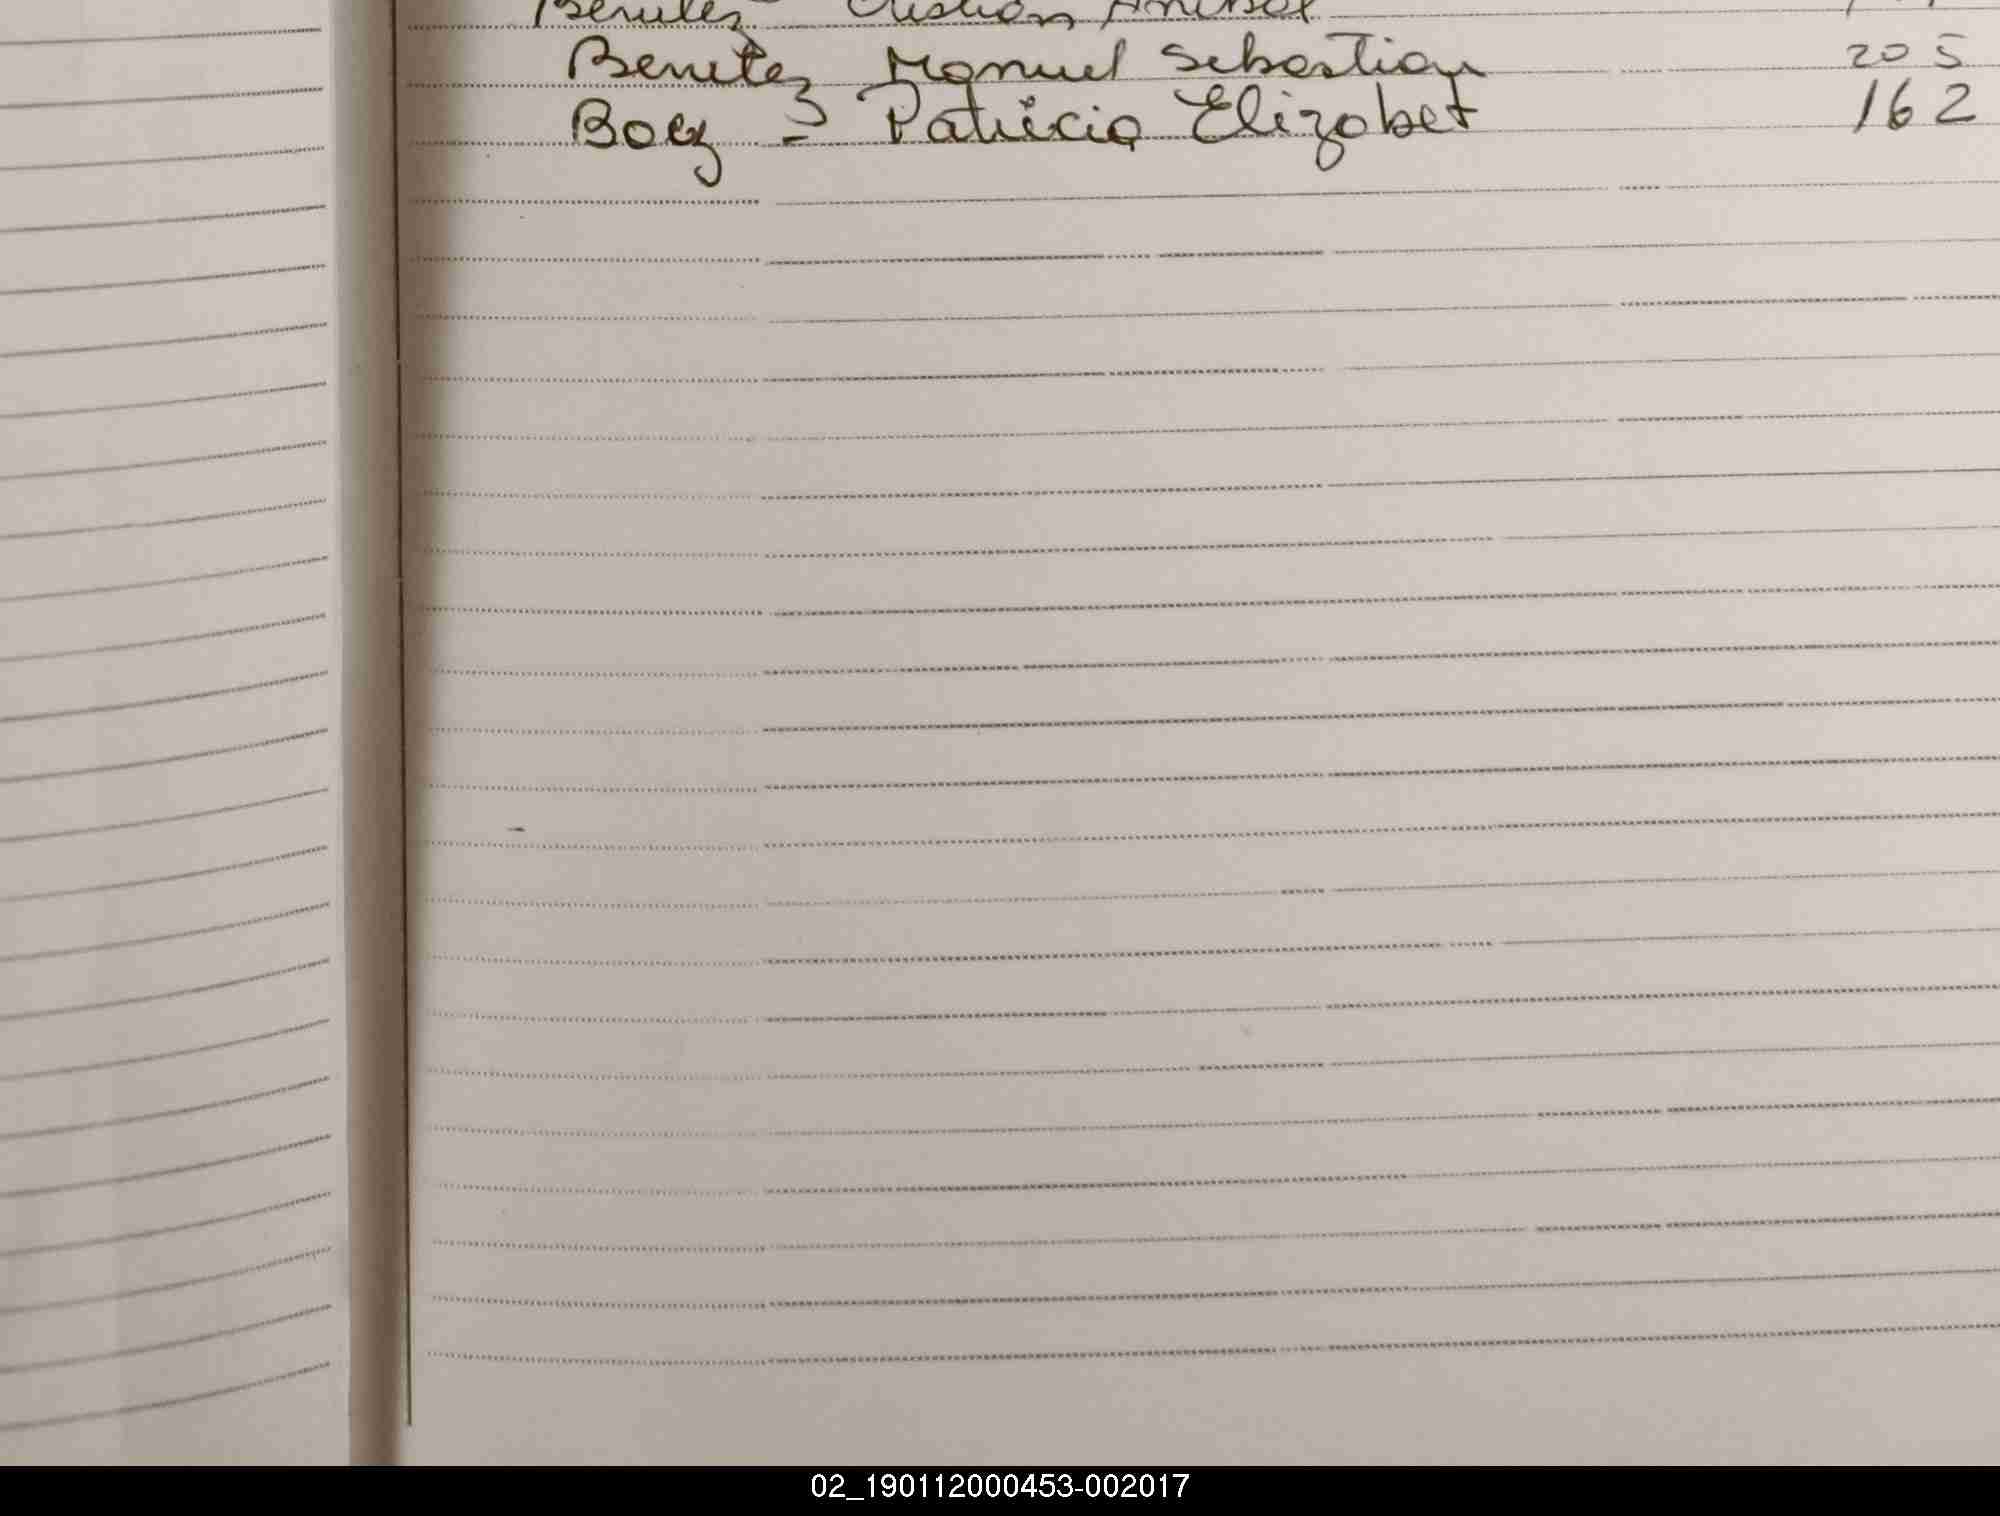 Benitez Cristian Anibal
Benitez Manuel Sebastian 205
Baez - Patricia Elizabet 162
02_190112000453-002017